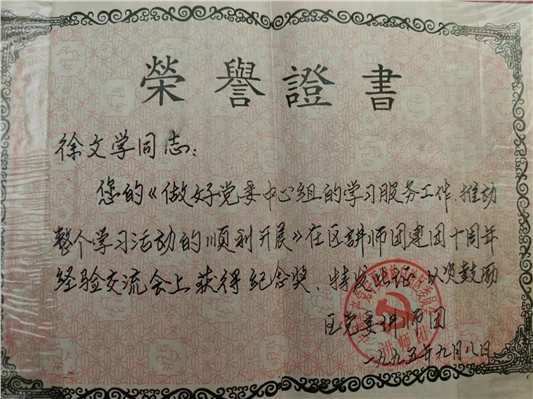 榮譽證書
徐文学同志：
您的《做好党委中心组的学习服务工作，推动
整个学习活动的顺利开展》在区讲师团建团十周年
经验交流会上获得纪念奖，特发此证，以资鼓励
区党委讲师团
一九九五年九月八日
讲师团